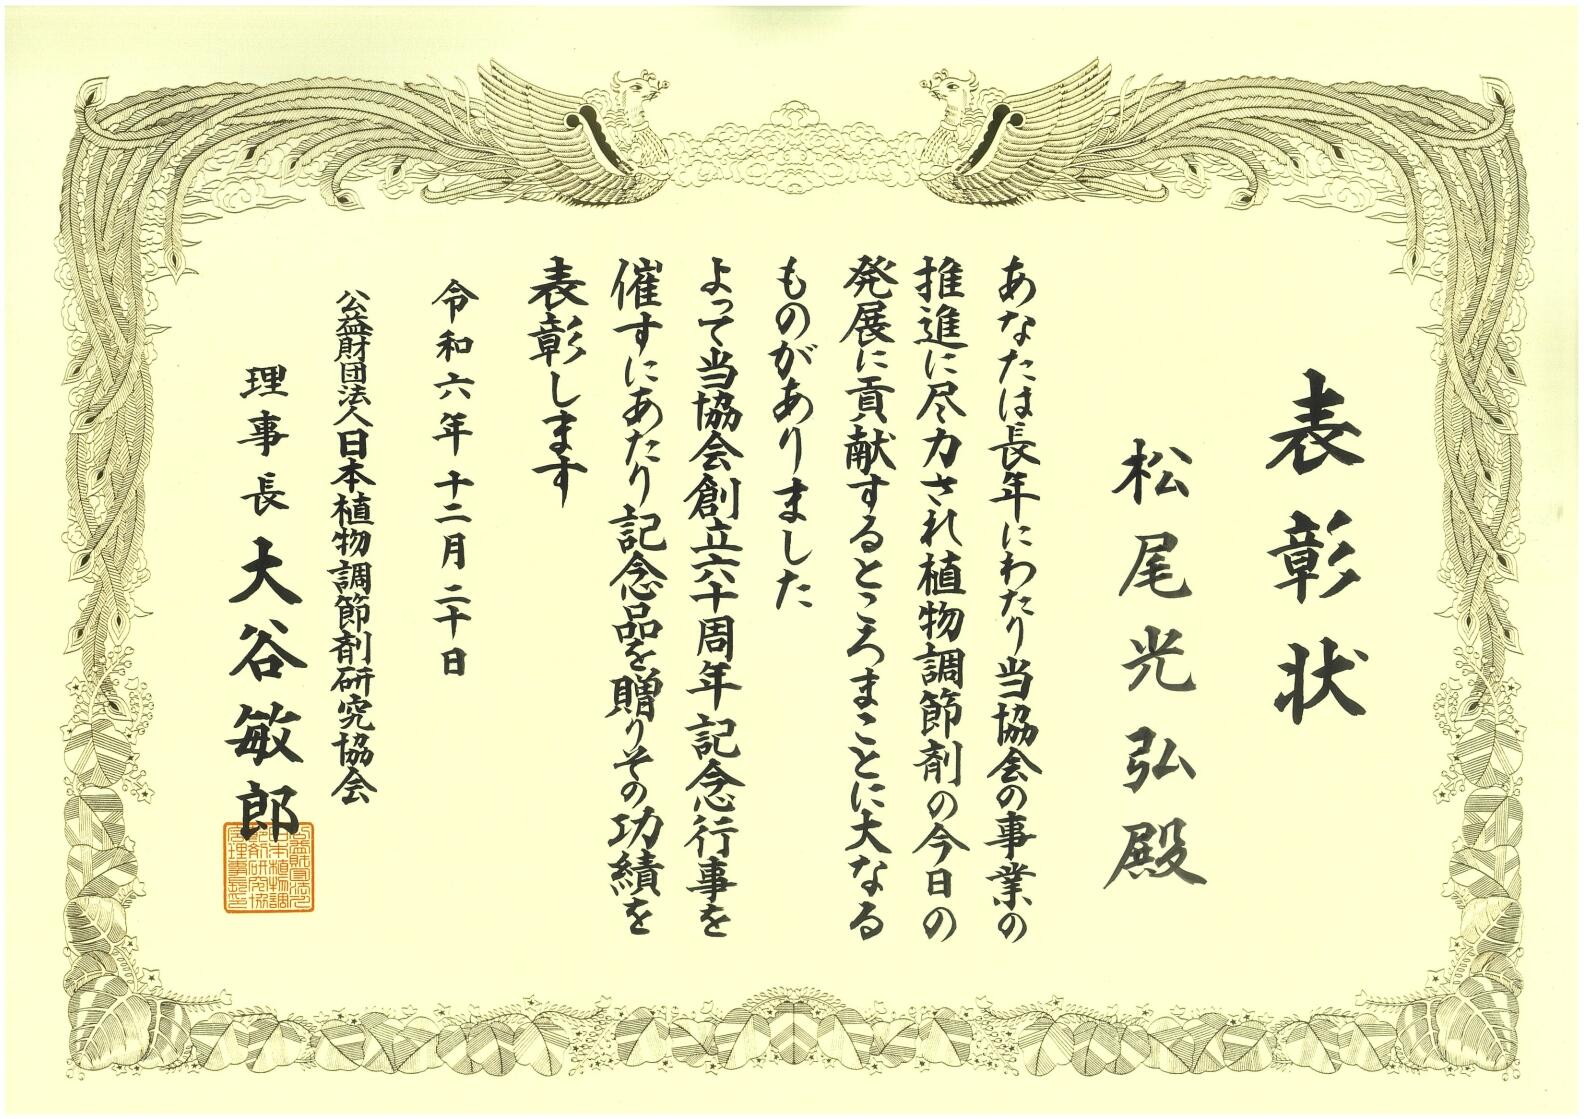 表彰状
松尾光弘殿
あなたは長年にわたり当協会の事業の
推進に尽力され植物調節剤の今日の
発展に貢献するところまことに大なる
ものがありました
よって当協会創立六十周年記念行事を
催すにあたり記念品を贈りその功績を
表彰します
令和六年十二月二十日
公益財団法人日本植物調節剤研究協会
理事長 大谷敏郎